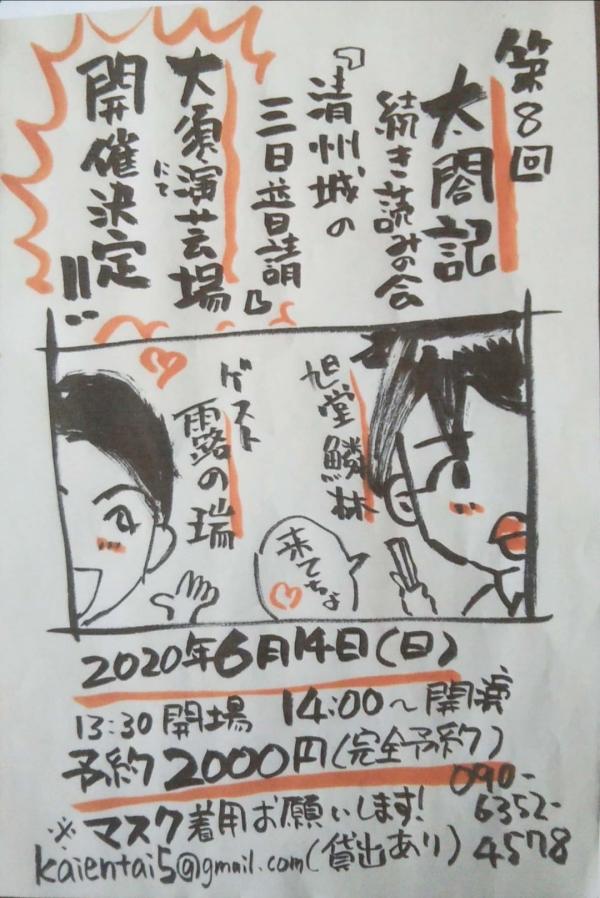 第8回
太閤記
続き読みの会
『清州城の
三日普請』
大須演芸場
にて
開催決定!!
旭堂鱗林
ゲスト
露の瑞
来てちょ
2020年6月14日(日)
13:30開場 14:00〜開演
予約2000円(完全予約)
※マスク着用お願いします!
(貸出あり)
090-
6352-
4578
kaientai5@gmail.com